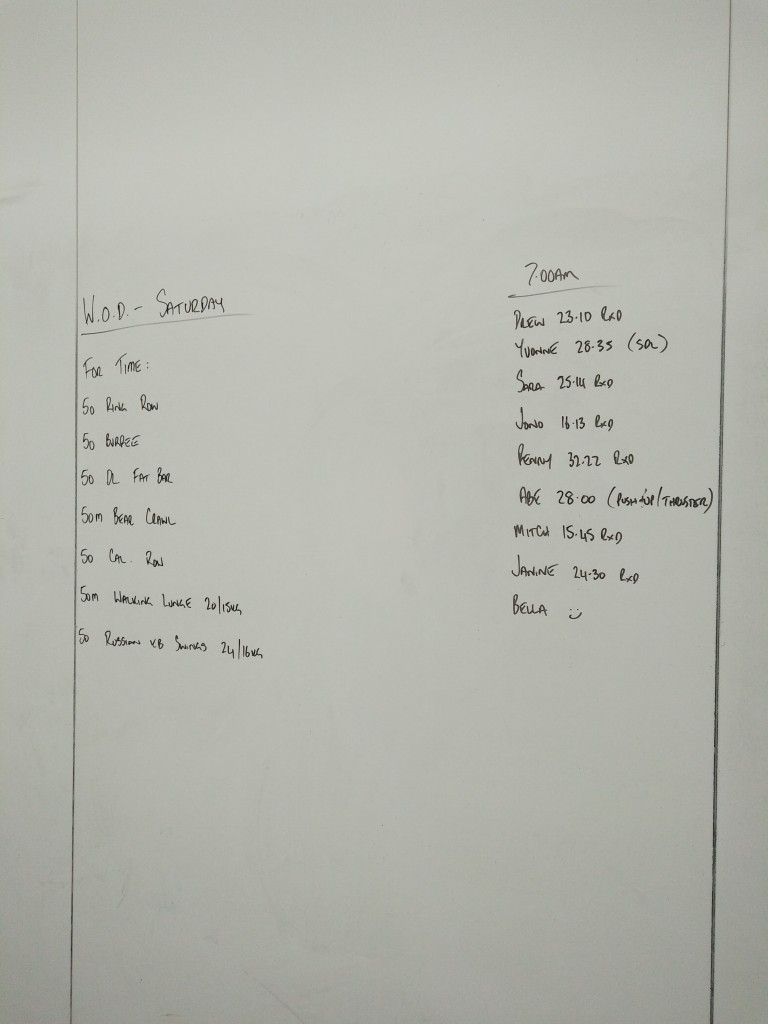 W.O.D. - SATURDAY
FOR TIME:
50 RING ROW
50 BURPEE
50 DL FAT BAR
50M BEAR CRAWL
50 CAL. ROW
50M WALKING LUNGE 20/15KG
50 RUSSIAN KB SWINGS 24/16KG
7.00AM
DREW 23.10 RXD
YVONNE 28.35 (SCL)
SARA 25.14 RXD
JONO 16.13 RXD
PENNY 32.22 RXD
ABE 28.00 (PUSH UP/THRUSTER)
MITCH 15.45 RXD
JANINE 24.30 RXD
BELLA :)